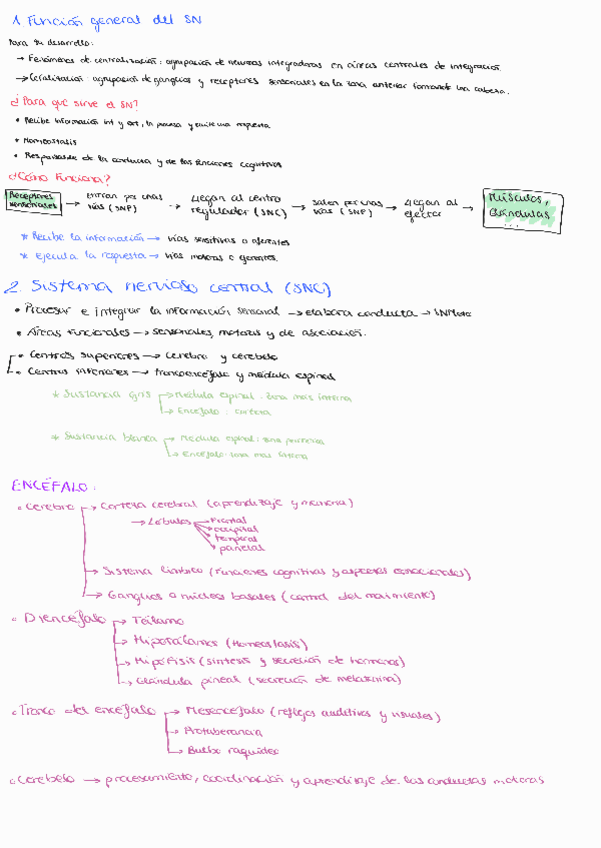 1. Función general del SN
Para su desarrollo:
→ Fenómenos de centralización: agrupación de neuronas integradoras en áreas centrales de integración.
→ Cefalización: agrupación de ganglios y receptores sensoriales en la zona anterior formando una cabeza.
¿Para qué sirve el SN?
• Recibe información int y ext, la procesa y emite una respuesta
• Homeostasis
• Responsable de la conducta y de las funciones cognitivas
¿Cómo funciona?
Receptores sensoriales → entran por unas vías (SNP) → Llegan al centro regulador (SNC) → salen por unas vías (SNP) → Llegan al efector → Músculos, Glándulas ...
* Recibe la información → vías sensitivas o aferentes
* Ejecuta la respuesta → vías motoras o eferentes.
2. Sistema nervioso central (SNC)
• Procesar e integrar la información sensorial → elabora conducta →
• Áreas funcionales → sensoriales, motoras y de asociación.
• Centros superiores → cerebro y cerebelo
• Centros inferiores → troncoencéfalo y médula espinal
* Sustancia gris → Médula espinal: zona más interna
→ Encéfalo: corteza
* Sustancia blanca → Médula espinal: zona
→ Encéfalo: zona más interna
ENCÉFALO:
• Cerebro → Corteza cerebral (aprendizaje y memoria)
→ Lóbulos → Frontal
→ occipital
→ temporal
→ parietal
→ Sistema límbico (Funciones cognitivas y aspectos emocionales)
→ Ganglios o núcleos basales (control del movimiento)
• Diencéfalo → Tálamo
→ Hipotálamos (Homeostasis)
→ Hipófisis (síntesis y secreción de hormonas)
→ Glándula pineal (secreción de melatonina)
• Tronco del encéfalo → Mesencéfalo (reflejos auditivos y visuales)
→ Protuberancia
→ Bulbo raquídeo
• Cerebelo → procesamiento, coordinación y aprendizaje de las conductas motoras